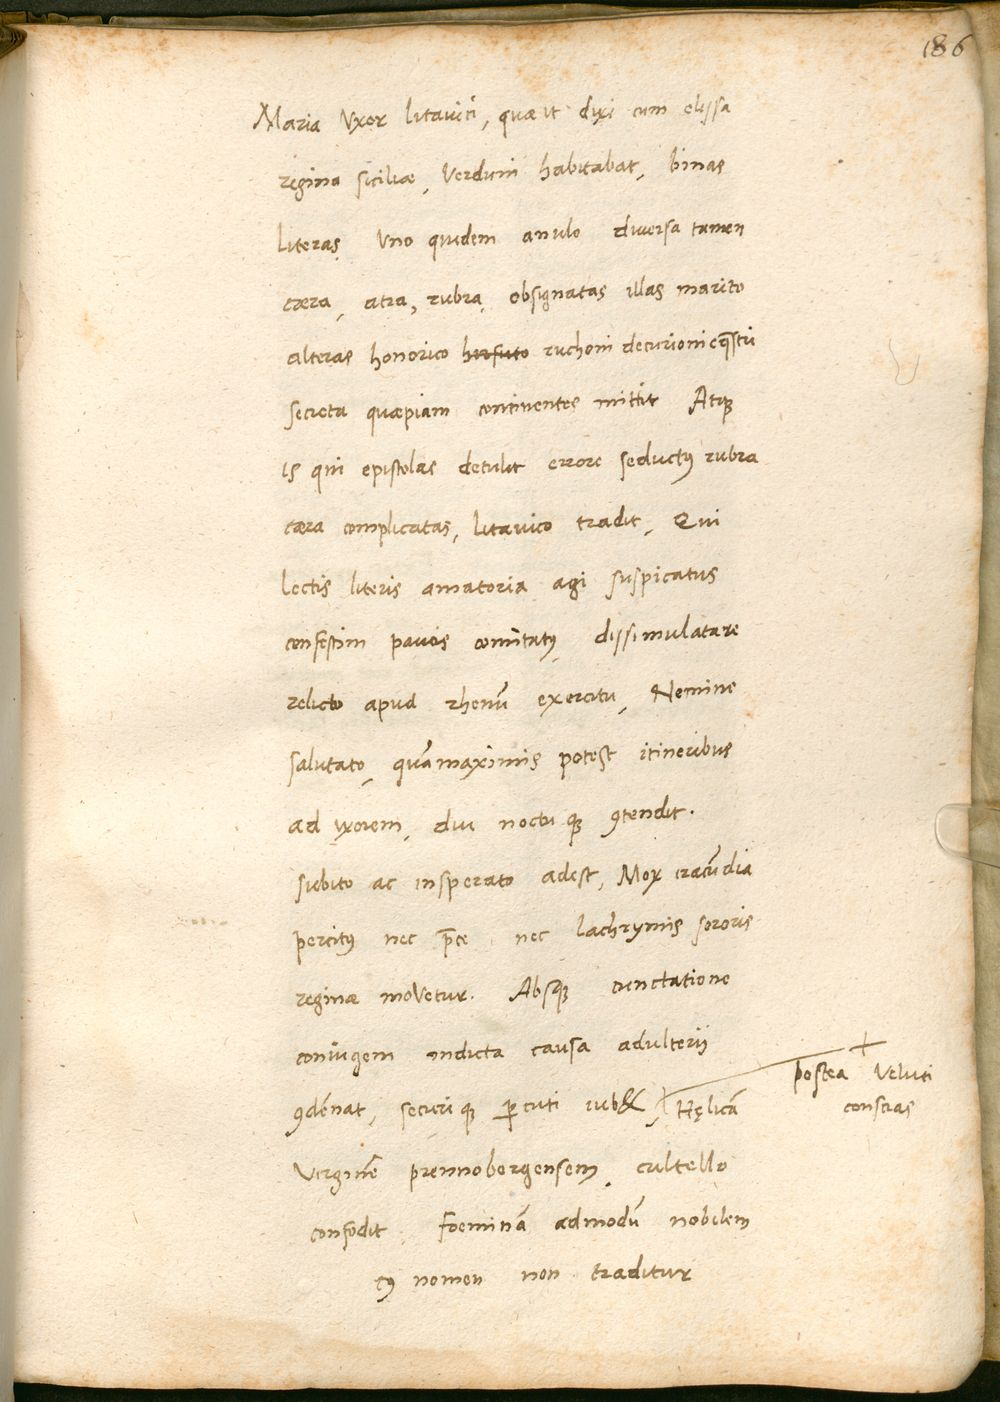 186
Maria Vxor litauici, quæ ut dixi cum elissa
regina siciliæ, Verduni habitabat, binas
literas Vno quidem anulo diuersa tamen
cæra, atra, rubra, obsignatas illas marito
alteras honorico herfuto ruchoni decurioni eq̃stri
secreta quæpiam continentes mittit Atq;
is qui epistolas detulit errore seductꝯ rubra
cæra complicatas, litauico tradit, Qui
lectis literis amatoria agi suspicatus
confestim paucis comitatꝯ, dissimulata re
relicto apud rhenũ exercitu, Nemine
salutato, quã maximis potest itineribus
ad uxorem, diu noctu q; ꝯtendit.
subito ac insperato adest, Mox iracũdia
percitꝯ nec p̄ce nec lachrymis sororis
reginæ moVetur. Absq; cunctatione
coniugem indicta causa adulterij
ꝯdẽnat, securi q; ꝑcuti iub&, Hęlicã
postea Veluti
conscias
Virginẽ prennobergensem cultello
confodit, foeminã admodũ nobilem
cꝯ nomen non traditur